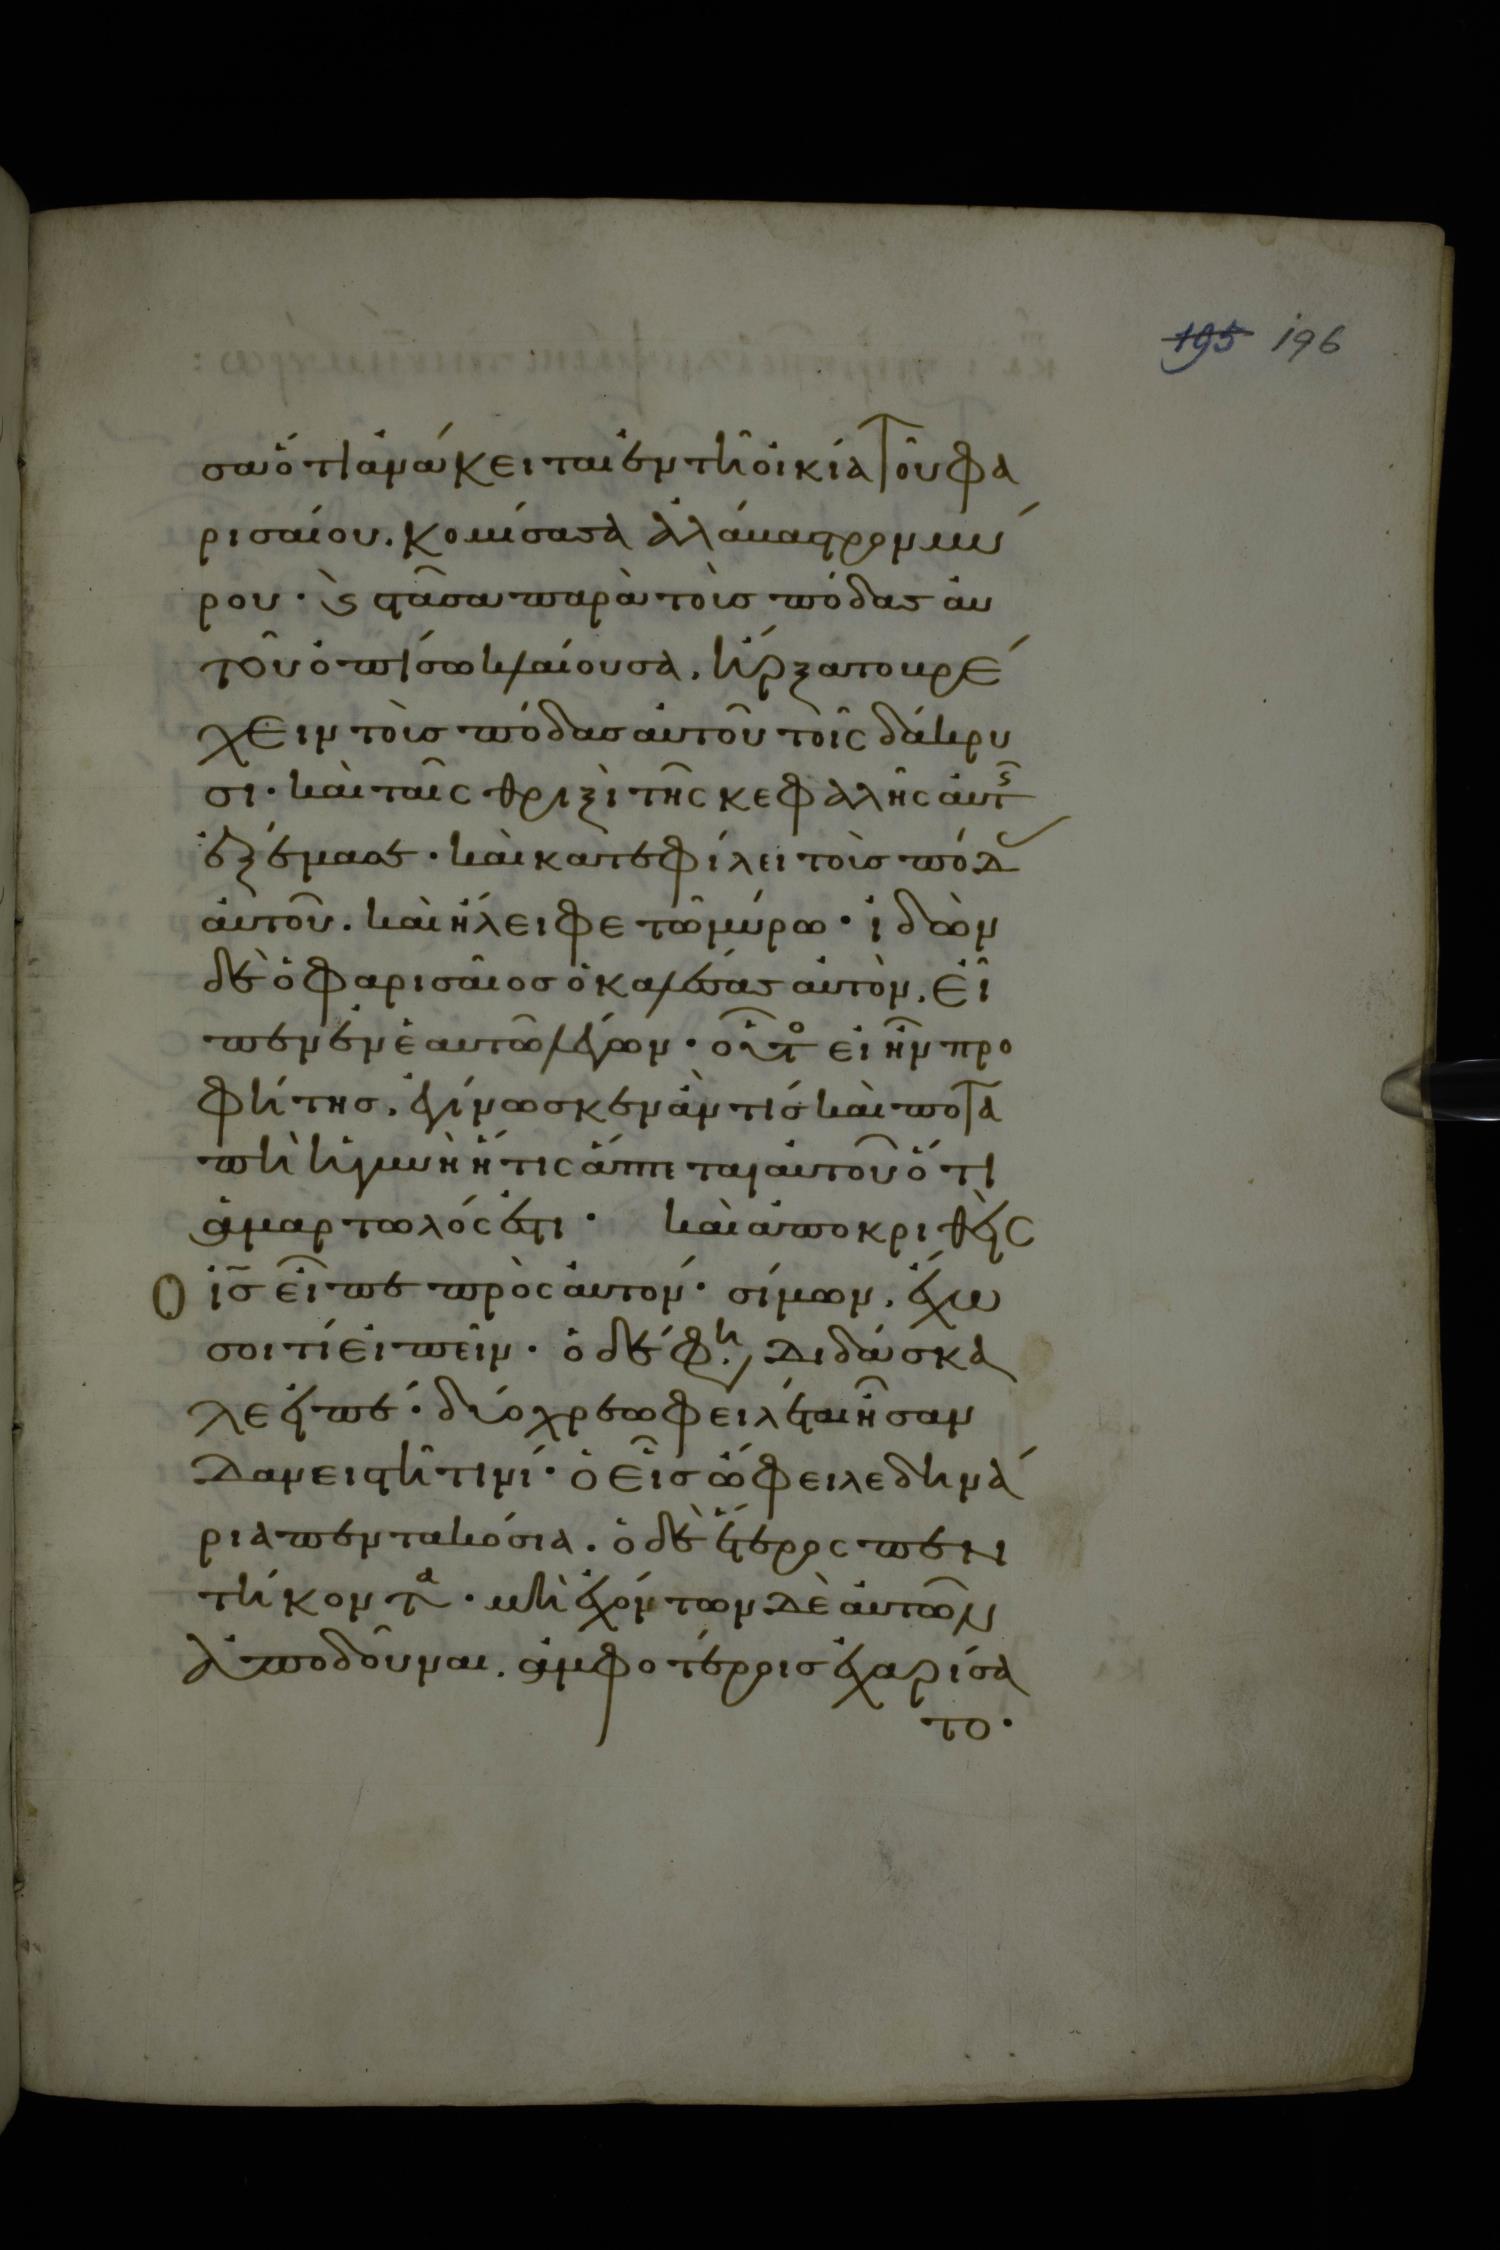 195 196
σα ὅτι ἀνάκειται ἐν τῆ οἰκία τοῦ φα
ρισαίου. κομίσασα ἀλάβαστρον μύ
ρου· ϗ στᾶσα παρὰ τοὺσ πόδασ αὐ
τοῦ ὀπίσω κλαίουσα, ἤρξατο βρέ
χειν τοὺσ πόδασ αὐτοῦ τοῖς δάκρυ
σι· καὶ ταῖς θριξὶ τῆς κεφαλῆς αὐτς
ἐξέμασσε· καὶ κατεφίλει τοὺσ πόδ
αὐτοῦ. καὶ ἤλειφε τῶ μύρω· ἰδὼν
δὲ ὁ φαρισαῖοσ ὁ καλέσασ αὐτὸν, εἶ
πεν ἐν ἑαυτῶ λέγων· οὗτο εἰ ἦν προ
φήτησ, ἐγίνωσκεν ἂν τίσ καὶ ποτα
πὴ ἡ γυνὴ ἥτις ἅπτεται αὐτοῦ ὅτι
ἁμαρτωλός ἐστι· καὶ ἀποκριθεὶς
Ὁ ις εἶπε πρὸς αὐτόν· σίμων, ἔχω
σοι τί εἰπεῖν· ὁ δέ φη, διδάσκα
λε εἰπέ· δύο χρεωφειλέται ἦσαν
δανειστῆ τινί· ὁ εἷσ ὤφειλε δηνά
ρια πεντακόσια. ὁ δὲ ἕτερος πεν
τήκοντα· μὴ ἐχόντων δὲ αὐτῶν
ἀποδοῦναι, ἀμφοτέροισ ἐχαρίσα
το·